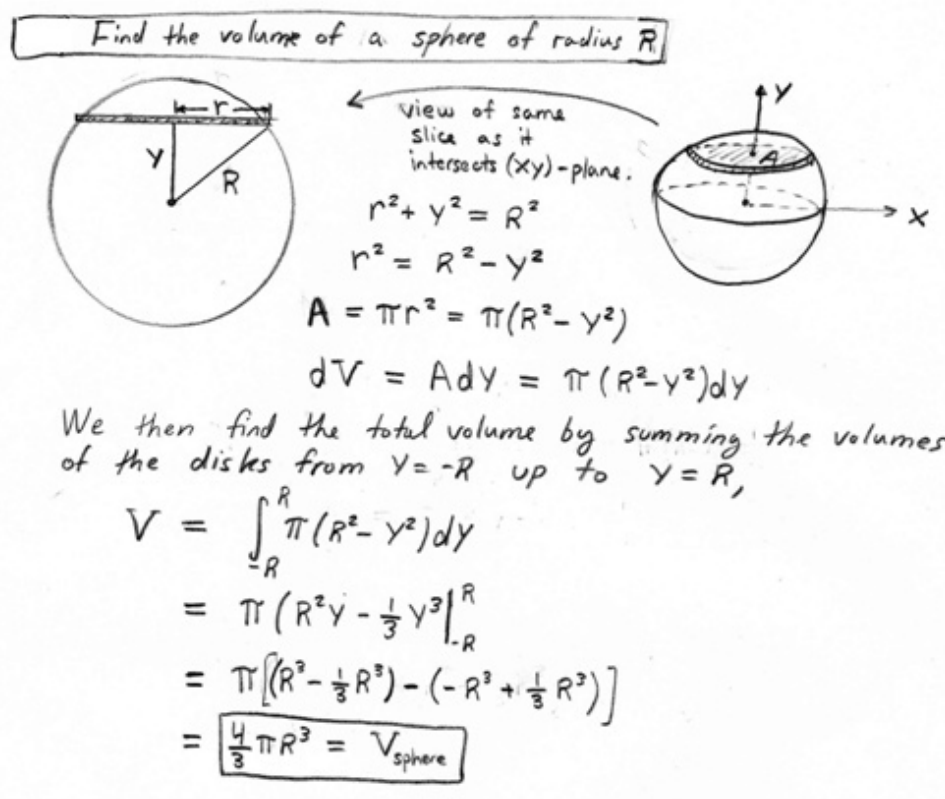 Find the volume of a sphere of radius R.
r
y
R
view of same
slice as it
intersects (xy)-plane.
y
A
x
r² + y² = R²
r² = R² - y²
A = πr² = π(R² - y²)
dV = Ady = π(R² - y²)dy
We then find the total volume by summing the volumes
of the disks from y = -R up to y = R,
V = ∫_{-R}^{R} π(R² - y²)dy
= π(R²y - 1/3 y³|_{-R}^{R}
= π[(R³ - 1/3 R³) - (-R³ + 1/3 R³)]
= 4/3 πR³ = V_sphere